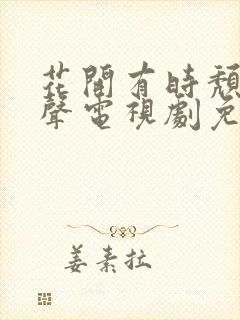 花開有時頹
聲電視劇免
姜素拉